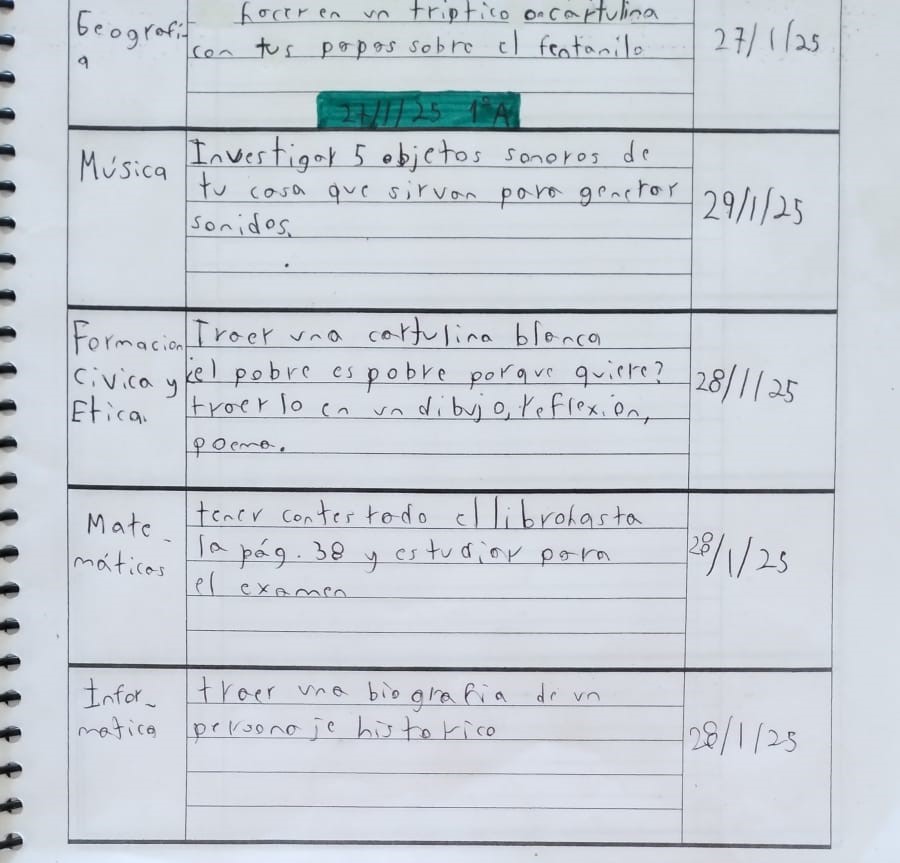 hacer en un triptico oncartulina
Geografi
a
con tus papas sobre el fentanilo
27/1/25
27/1/25 1°A
Música
Investigar 5 objetos sonoros de
tu casa que sirvan para generar
sonidos.
29/1/25
Formacion
Civica y
Etica.
Traer una cartulina blanca
¿el pobre es pobre porque quiere?
traerlo en un dibujo, reflexion,
poema.
28/1/25
Mate-
máticas
tener contestado el librohasta
la pág. 38 y estudiar para
el examen
28/1/25
Infor-
matica
traer una biografia de un
personaje historico
28/1/25